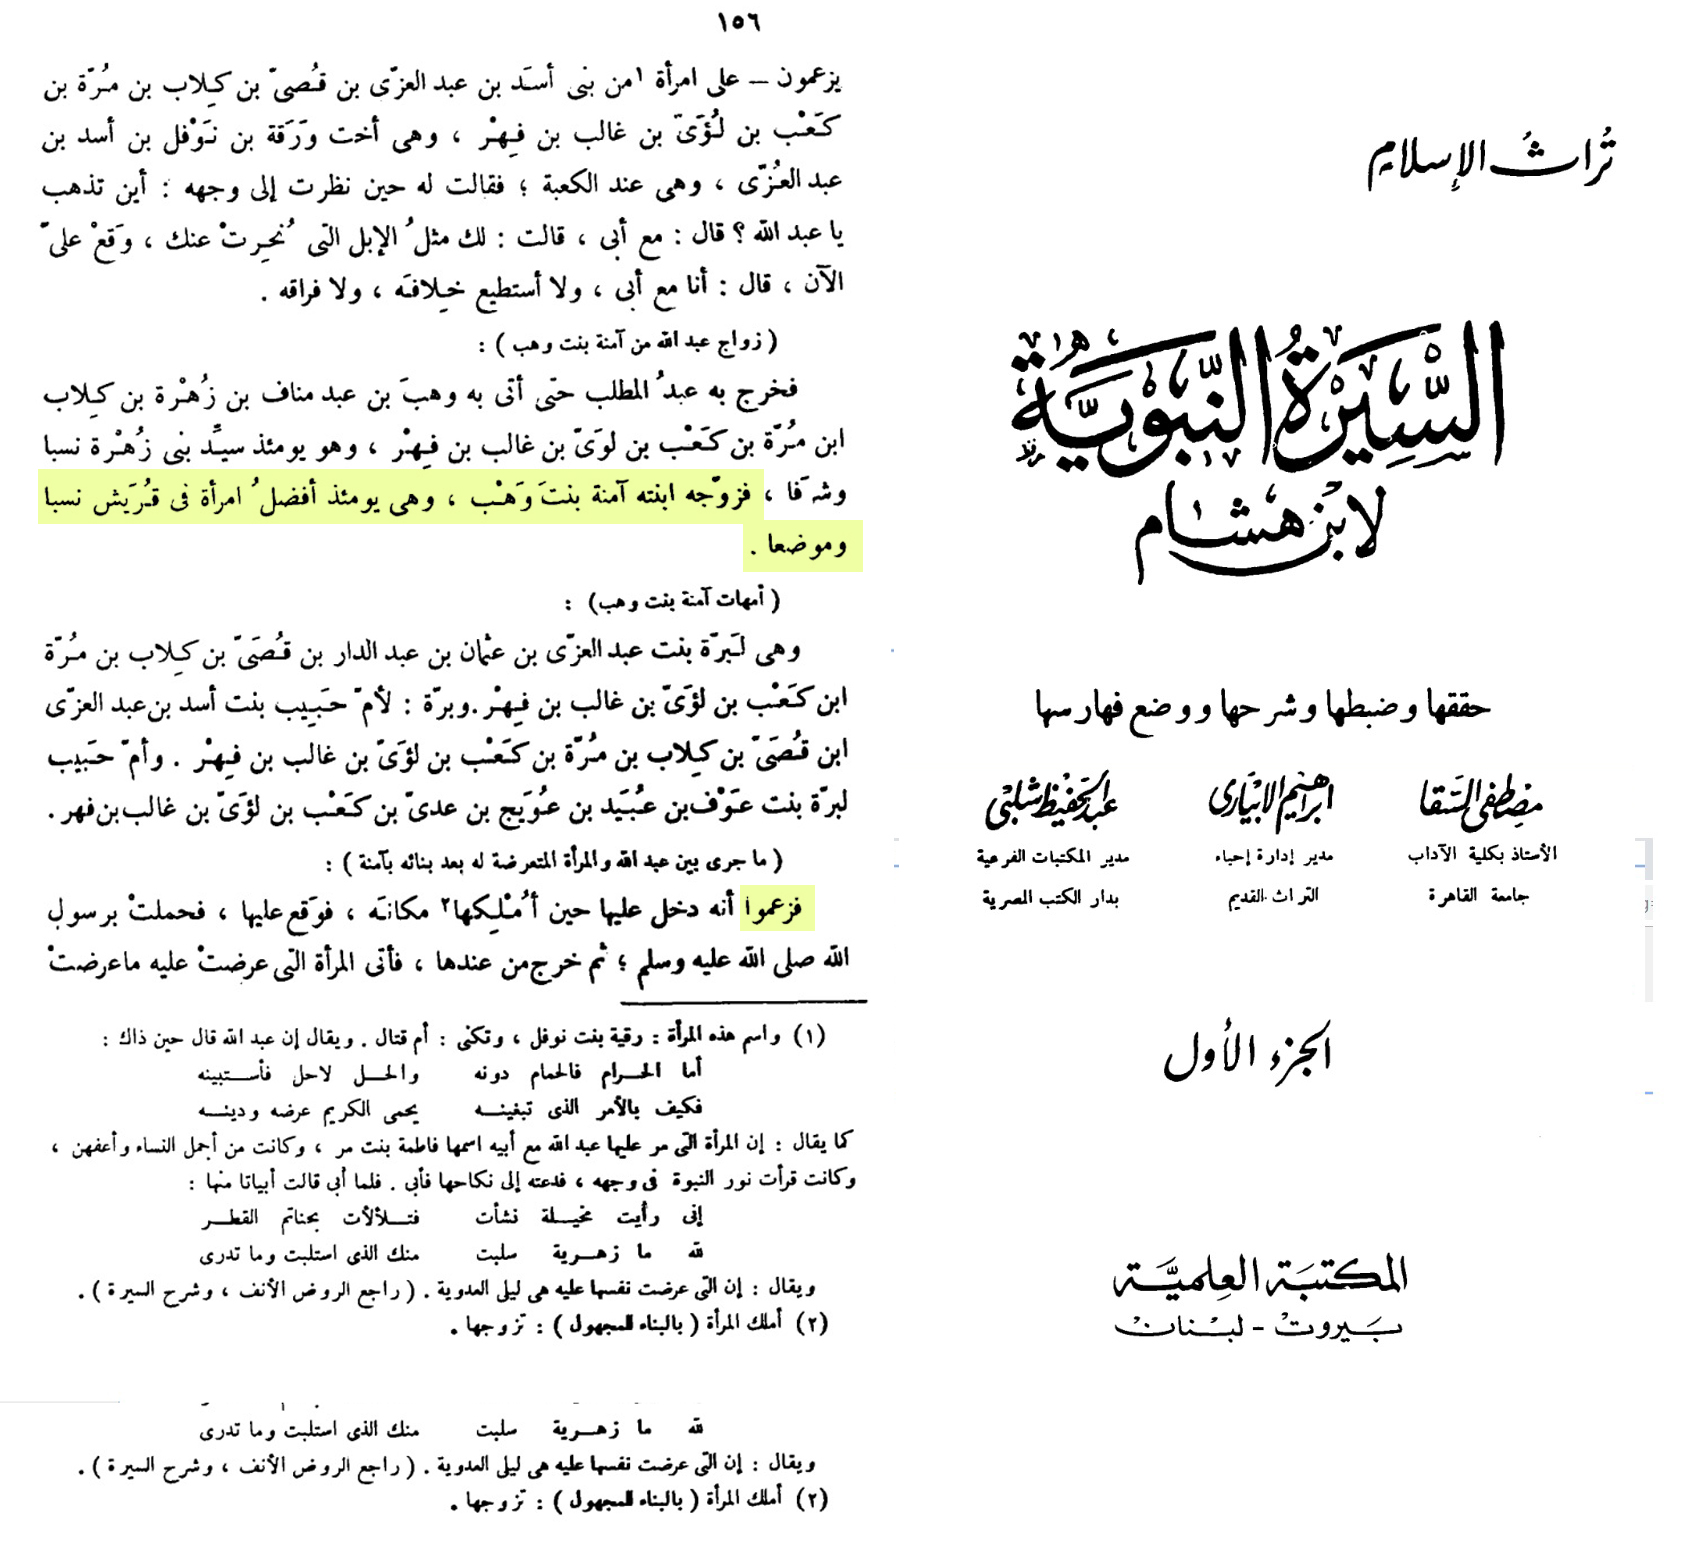 ١٥٦
يزعمون – على امرأة ١ من بنى أسَد بن عبد العزّى بن قُصىّ بن كِلاب بن مُرّة بن
كَعْب بن لُؤَىّ بن غالب بن فِهْر ، وهى أخت وَرَقة بن نَوْفل بن أسد بن
عبد العُزّى ، وهى عند الكعبة ؛ فقالت له حين نظرت إلى وجهه : أين تذهب
يا عبد الله ؟ قال : مع أبى ، قالت : لك مثلُ الإبل التى نُحِرتْ عنك ، وقَعْ علىّ
الآن ، قال : أنا مع أبى ، ولا أستطيع خِلافَه ، ولا فراقه .
( زواج عبد الله من آمنة بنت وهب ) :
فخرج به عبدُ المطلب حتى أتى به وهبَ بن عبد مناف بن زُهْرة بن كِلاب
ابن مُرّة بن كَعْب بن لوَىّ بن غالب بن فِهْر ، وهو يومئذ سيِّد بنى زُهْرة نسبا
وشرَفا ، فزوّجه ابنته آمنة بنتَ وَهْب ، وهى يومئذ أفضلُ امرأة فى قُرَيش نسبا
وموضعا .
( أمهات آمنة بنت وهب) :
وهى لَبرّة بنت عبد العزّى بن عثمان بن عبد الدار بن قُصَىّ بن كِلاب بن مُرّة
ابن كَعْب بن لؤَىّ بن غالب بن فِهْر . وبرّة : لأمّ حَبِيب بنت أسد بن عبد العزّى
ابن قُصَىّ بن كِلاب بن مُرّة بن كَعْب بن لؤَىّ بن غالب بن فِهْر . وأمّ حَبيب
لبرّة بنت عَوْف بن عُبَيد بن عُوَيج بن عدىّ بن كَعْب بن لؤَىّ بن غالب بن فهر .
( ما جرى بين عبد الله والمرأة المتعرضة له بعد بنائه بآمنة ) :
فزعموا أنه دخل عليها حين أُمْلِكها٢ مكانَه ، فوَقع عليها ، فحملتْ برسول
الله صلى الله عليه وسلم ؛ ثم خرج من عندها ، فأتى المرأة التى عرضتْ عليه ماعرضتْ
(١) واسم هذه المرأة : رقية بنت نوفل ، وتكنى : أم قتال . ويقال إن عبد الله قال حين ذاك :
أما الحرام فالحمام دونه والحل لاحل فأستبينه
فكيف بالأمر الذى تبغينه يحمى الكريم عرضه ودينه
كما يقال : إن المرأة التى مر عليها عبد الله مع أبيه اسمها فاطمة بنت مر ، وكانت من أجمل النساء وأعفهن ،
وكانت قرأت نور النبوة فى وجهه ، فدعته إلى نكاحها فأبى . فلما أبى قالت أبياتا منها :
إنى رأيت مخيلة نشأت فتلألأت بحناتم القطر
لله ما زهرية سلبت منك الذى استلبت وما تدرى
ويقال : إن التى عرضت نفسها عليه هى ليلى العدوية . ( راجع الروض الأنف ، وشرح السيرة ) .
(٢) أملك المرأة ( بالبناء للمجهول ) : تزوجها .
لله ما زهرية سلبت منك الذى استلبت وما تدرى
ويقال : إن التى عرضت نفسها عليه هى ليلى العدوية . ( راجع الروض الأنف ، وشرح السيرة ) .
(٢) أملك المرأة ( بالبناء للمجهول ) : تزوجها .
تُراثُ الإسلام
السِيرَةُ النَّبَوِيَّة
لابن هشام
حققها وضبطها وشرحها ووضع فهارسها
مصطفى السَّقا ابراهيم الابيارى عبد الحَفيظ شلبى
الأستاذ بكلية الآداب مدير إدارة إحياء مدير المكتبات الفرعية
جامعة القاهرة التراث القديم بدار الكتب المصرية
الجزء الأول
المكتبَة العِلميَّة
بَيروت - لبْنان